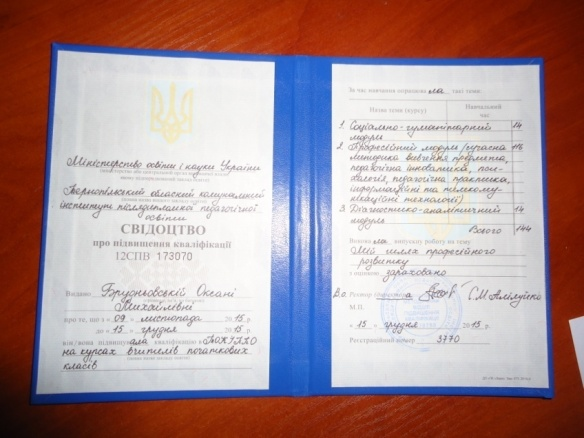 Міністерство освіти і науки України
Тернопільський обласний комунальний
інститут післядипломної педагогічної
освіти
СВІДОЦТВО
про підвищення кваліфікації
12СПВ 173070
Видано
Оксані
Михайлівні
про те, що з «09» листопада 2015 р.
до «15» грудня 2015 р.
на курсах вчителів початкових
класів
За час навчання опрацював ла такі теми:
Назва теми (курсу) Навчальний
час
1. Соціально-гуманітарний 14
модуль
2. Професійний модуль (сучасна 116
методика вивчення предмета,
педагогічна інноватика, пси-
хологія, педагогічна практика,
інформаційні та телекому-
нікаційні технології)
3. Діагностико-аналітичний 14
модуль
Всього 144
Викона ла випускну роботу на тему
Мій шлях професійного
розвитку
з оцінкою зараховано
В.о. Ректор
М.П.
«15» грудня 2015 р.
Реєстраційний номер 3770